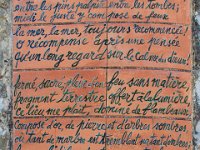 entre les pins palpite, entre les tombes;
midi le juste y compose de feux
la mer, la mer, toujours recommencée!
O récompense après une pensée
qu'un long regard sur le calme des dieux!
fermé, sacré, plein d'un feu sans matière,
fragment terrestre offert à la lumière,
ce lieu me plaît, dominé de flambeaux,
composé d'or, de pierre et d'arbres sombres,
où tant de marbre est tremblant sur tant d'ombres